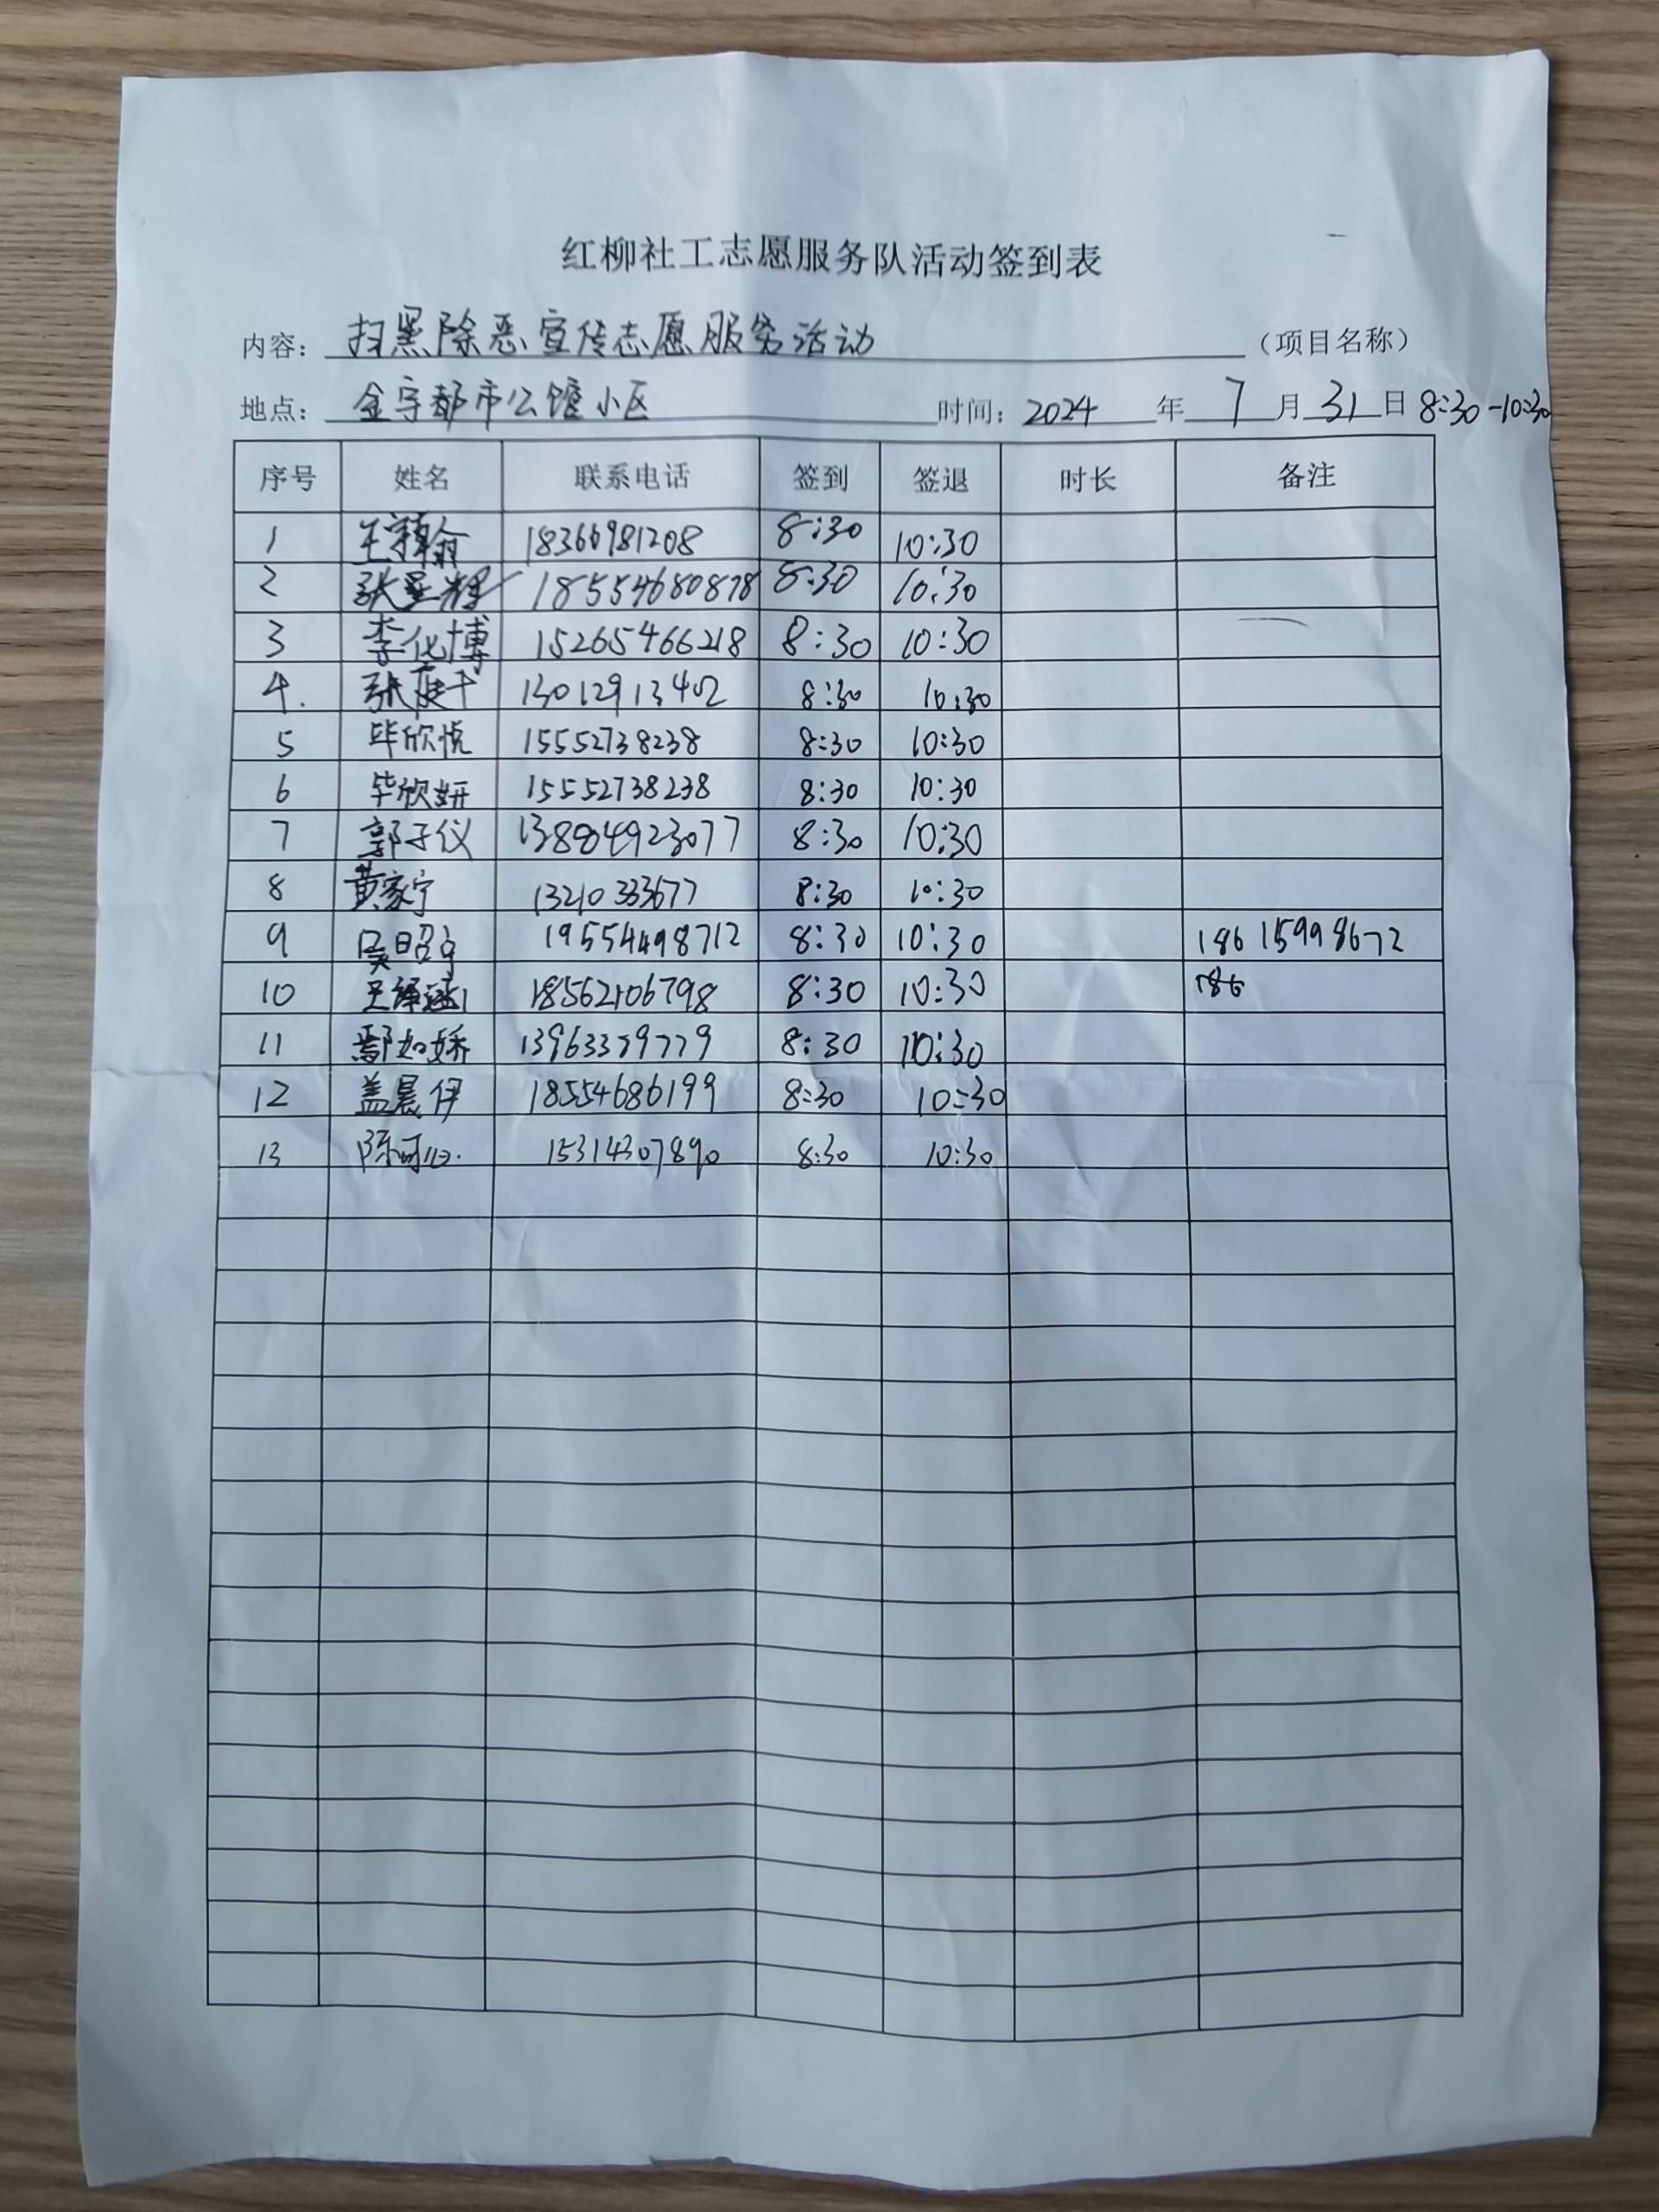 红柳社工志愿服务队活动签到表
内容：扫黑除恶宣传志愿服务活动（项目名称）
地点：金宇都市公馆小区 时间：2024年7月31日 8:30-10:30
序号 姓名 联系电话 签到 签退 时长 备注
1 王翰 18366981208 8:30 10:30
2 张星辉 18554680878 8:30 10:30
3 李化博 15265466218 8:30 10:30
4. 张庭 13012913402 8:30 10:30
5 毕欣悦 15552738238 8:30 10:30
6 毕欣妍 15552738238 8:30 10:30
7 郭子仪 8:30 10:30
8 黄家宁 13210333677 8:30 10:30
9 吴昭宁 19554498712 8:30 10:30 18615998672
10 王泽涵 18562106798 8:30 10:30 186
11 鄢如娇 8:30 10:30
12 盖晨伊 18554686199 8:30 10:30
13 陈可 15314307890 8:30 10:30